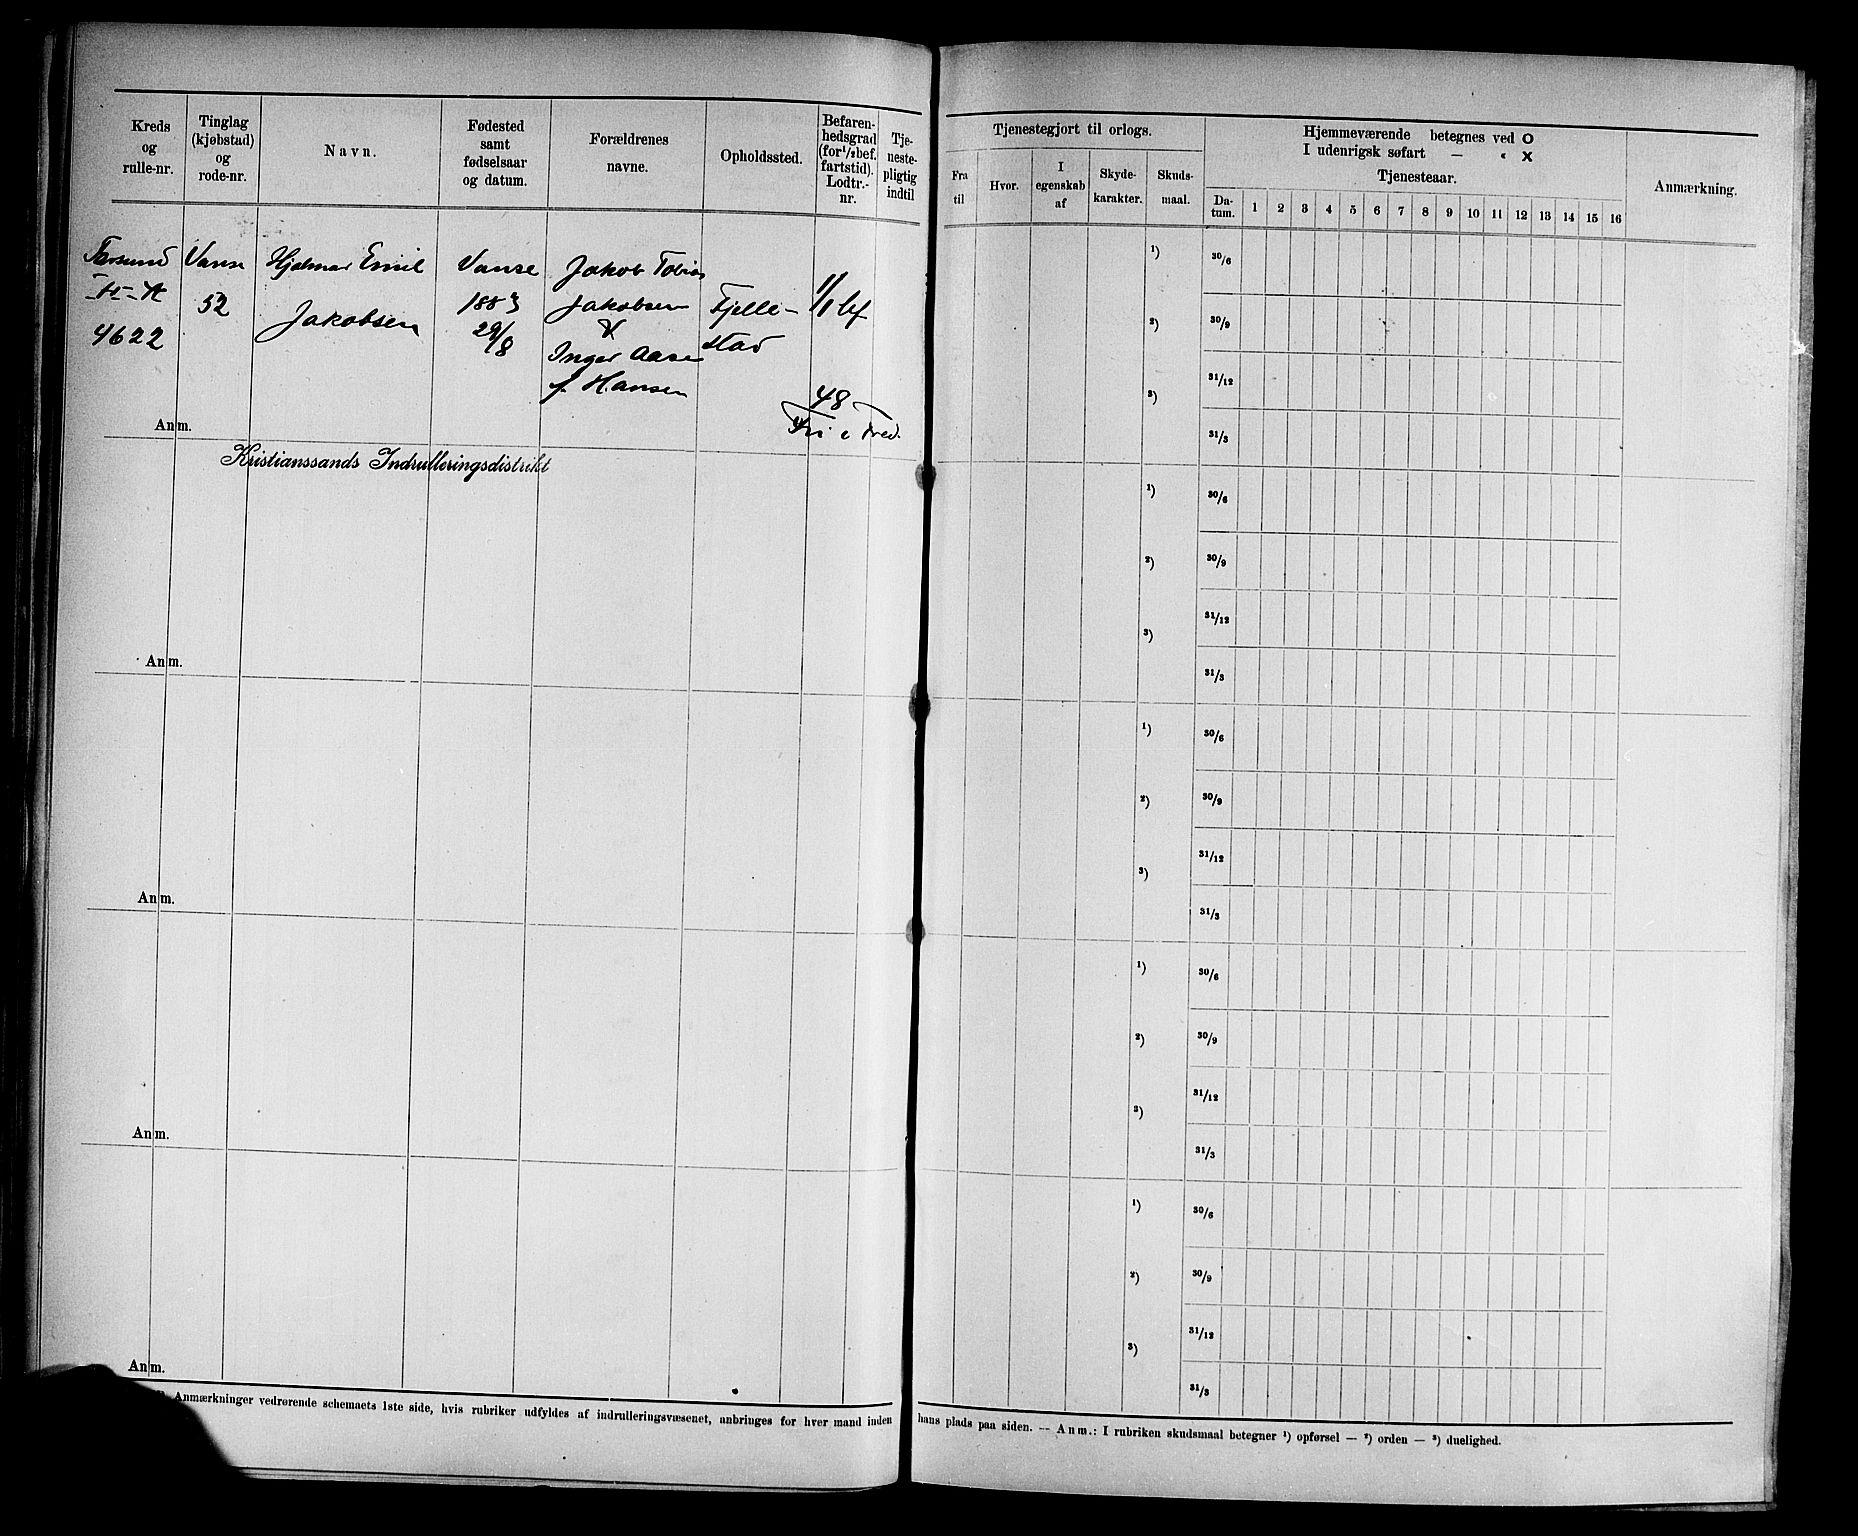 Kreds
og
rulle-nr.
Tinglag
(kjøbstad)
og
rode-nr.
Navn.
Fødested
samt
fødselsaar
og datum.
Forældrenes
navne.
Opholdssted.
Befaren-
hedsgrad
(for ¹/₂ bef.
fartstid).
Lodtr.-
nr.
Tje-
neste-
pligtig
indtil
Farsund
4622
Vanse
52
Hjalmar Emil
Jakobsen
Vanse
1883
29/8
Jakob Tobias
Jakobsen
Inger Aase
f. Hansen
Fjelle-
stad
1/1 bf
48
Fri i Fred.
Anm.
Kristianssands Indrulleringsdistrikt
Anm.
Anm.
Anm.
Anm.
Anmærkninger vedrørende schemaets 1ste side, hvis rubriker udfyldes af indrulleringsvæsenet, anbringes for hver mand inden
Tjenestegjort til orlogs.
Fra
til
Hvor.
I
egenskab
af
Skyde-
karakter.
Skuds-
maal.
Hjemmeværende betegnes ved O
I udenrigsk søfart — „ X
Tjenesteaar.
Da-
tum.
1 2 3 4 5 6 7 8 9 10 11 12 13 14 15 16
Anmærkning.
¹) 30/6
²) 30/9
31/12
³)
31/3
¹) 30/6
²) 30/9
31/12
³)
31/3
¹) 30/6
²) 30/9
31/12
³)
31/3
¹) 30/6
²) 30/9
31/12
³)
31/3
¹) 30/6
²) 30/9
31/12
³)
31/3
hans plads paa siden. — Anm.: I rubriken skudsmaal betegner ¹) opførsel — ²) orden — ³) duelighed.